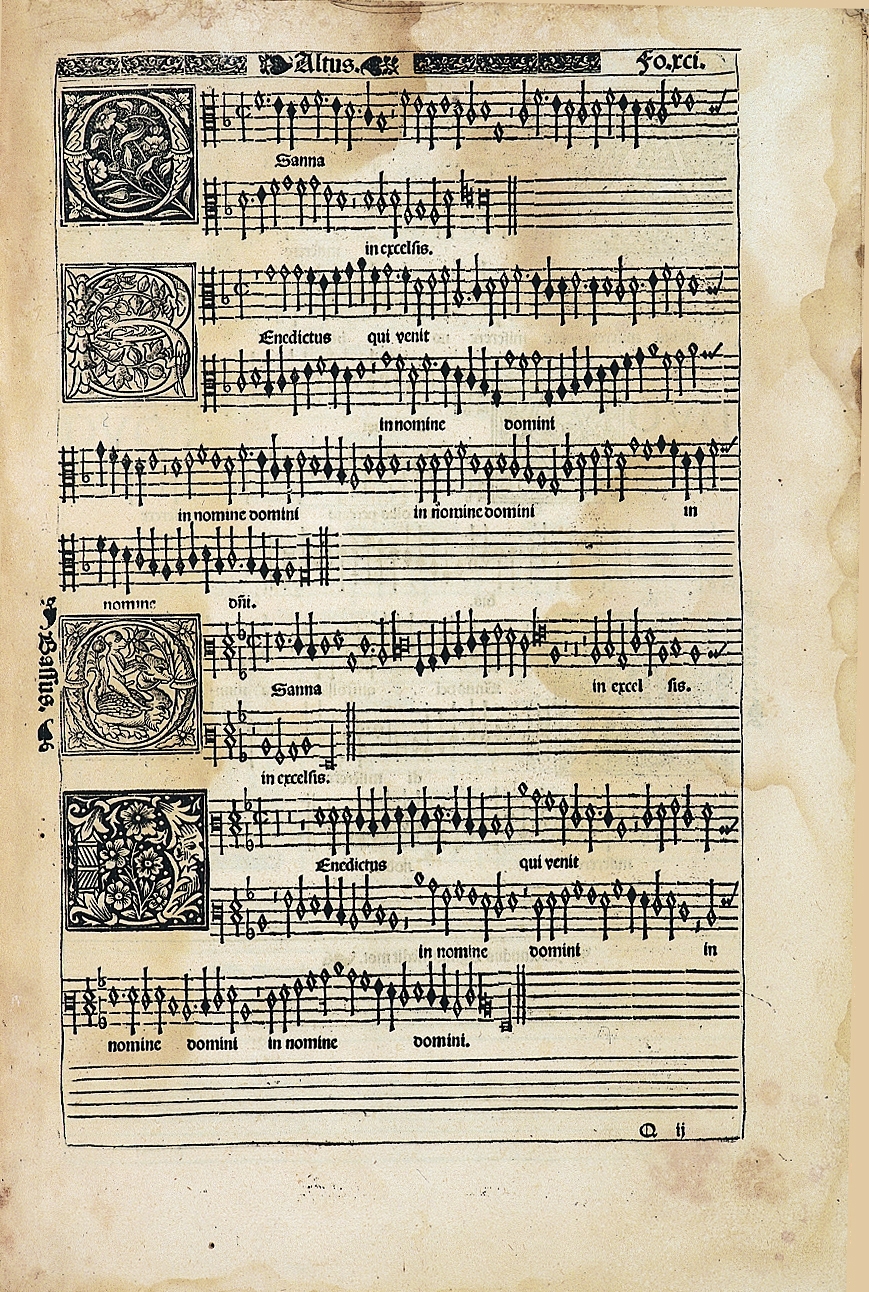 Altus. Fo.xci.
O Sanna
in excelsis.
B Enedictus qui venit
in nomine domini
in nomine domini in nomine domini in
nomine dñi.
Bassus.
O Sanna in excel sis.
in excelsis.
B Enedictus qui venit
in nomine domini in
nomine domini in nomine domini.
Q ij